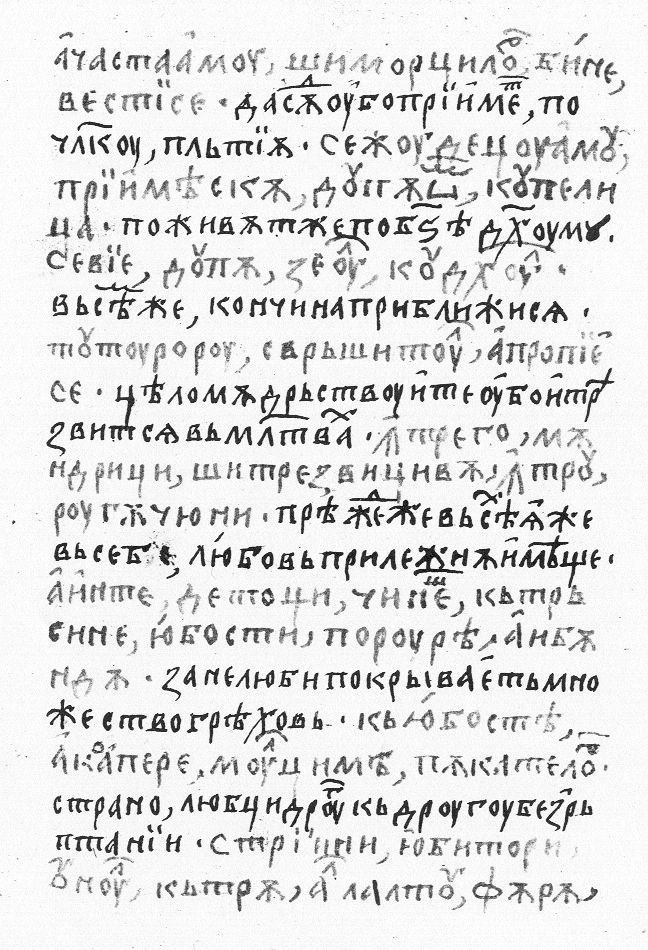 а҆часта а҆моу, шиморцилѡ, би́не,
вестїсе · да сѫ оубо прїи҆ме, по
члк̑оу, пльтїѫ · Се жоу децоу а҆моу,
прїи҆мѣскѫ, дꙋпѫ ш, кꙋпелни
ца · поживѫт же по бѕѣ дх҃оумꙋ.
Севїе, дꙋпѫ, зеоу, коу дхоу ·
вьсѣ же, кончина приближисѧ ·
тꙋтоуророу, сврьшитоу, а҆пропїе
се · цѣломѫдрьствоуи҆те оубо и҆ тр
звитсѧ вь млт҃ва · ꙟ҆црего, мѫ
ндрици, ши трезвици вѫ, ꙟ҆трꙋ,
роугѫчюни · прѣж҃е же вьсѣѫ҆ же
вьсебе, любовь прилежнѫ и҆мѣще ·
А҆и҆нте, детоци, чине, кьтрь
сине, ю҆бости, пороурѣ, а҆нбѫ
ндѫ · зане люби покрываеть мно
жество грѣховь · кь ю҆бостѣ,
а҆коапере, моуцимѣ, пѫкателѡ ·
страно, любци дроу кь дроугоу безрь
птанїи · Стрїини, ю҆битори
ꙋноу, кьтрѫ, а҆лалтꙋ, фѫрѫ,